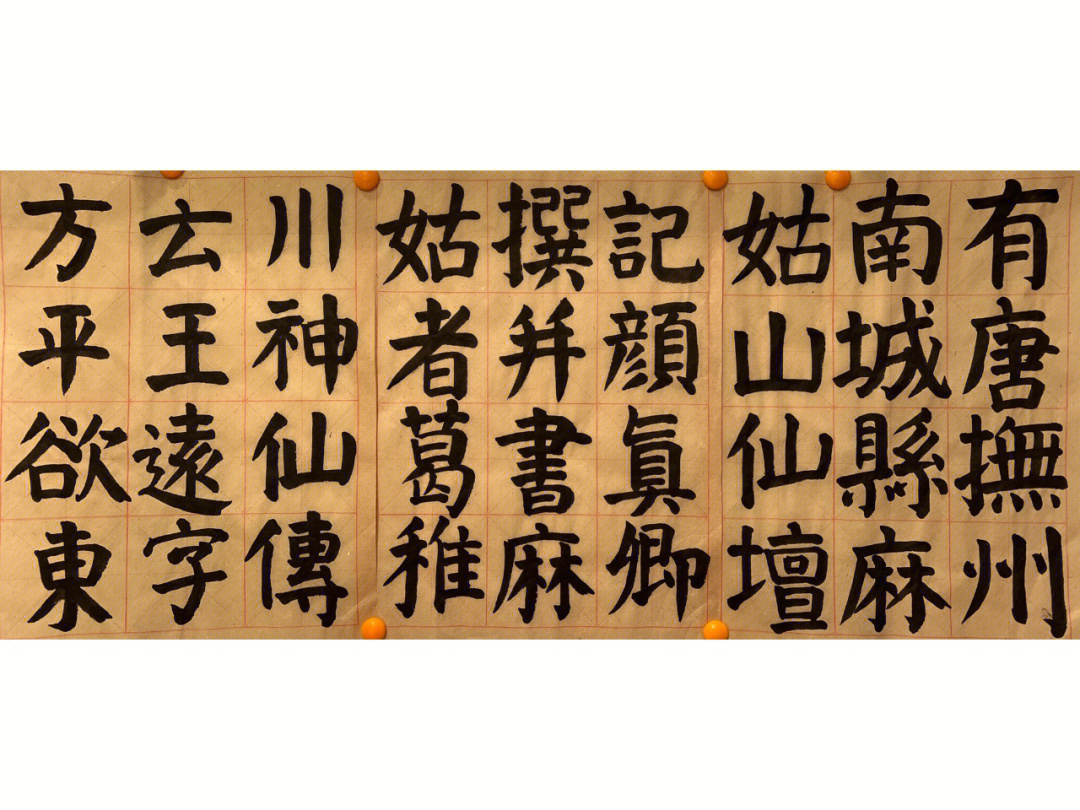 有唐撫州
南城縣麻
姑山仙壇
記顔眞卿
撰并書麻
姑者葛稚
川神仙傳
云王遠字
方平欲東